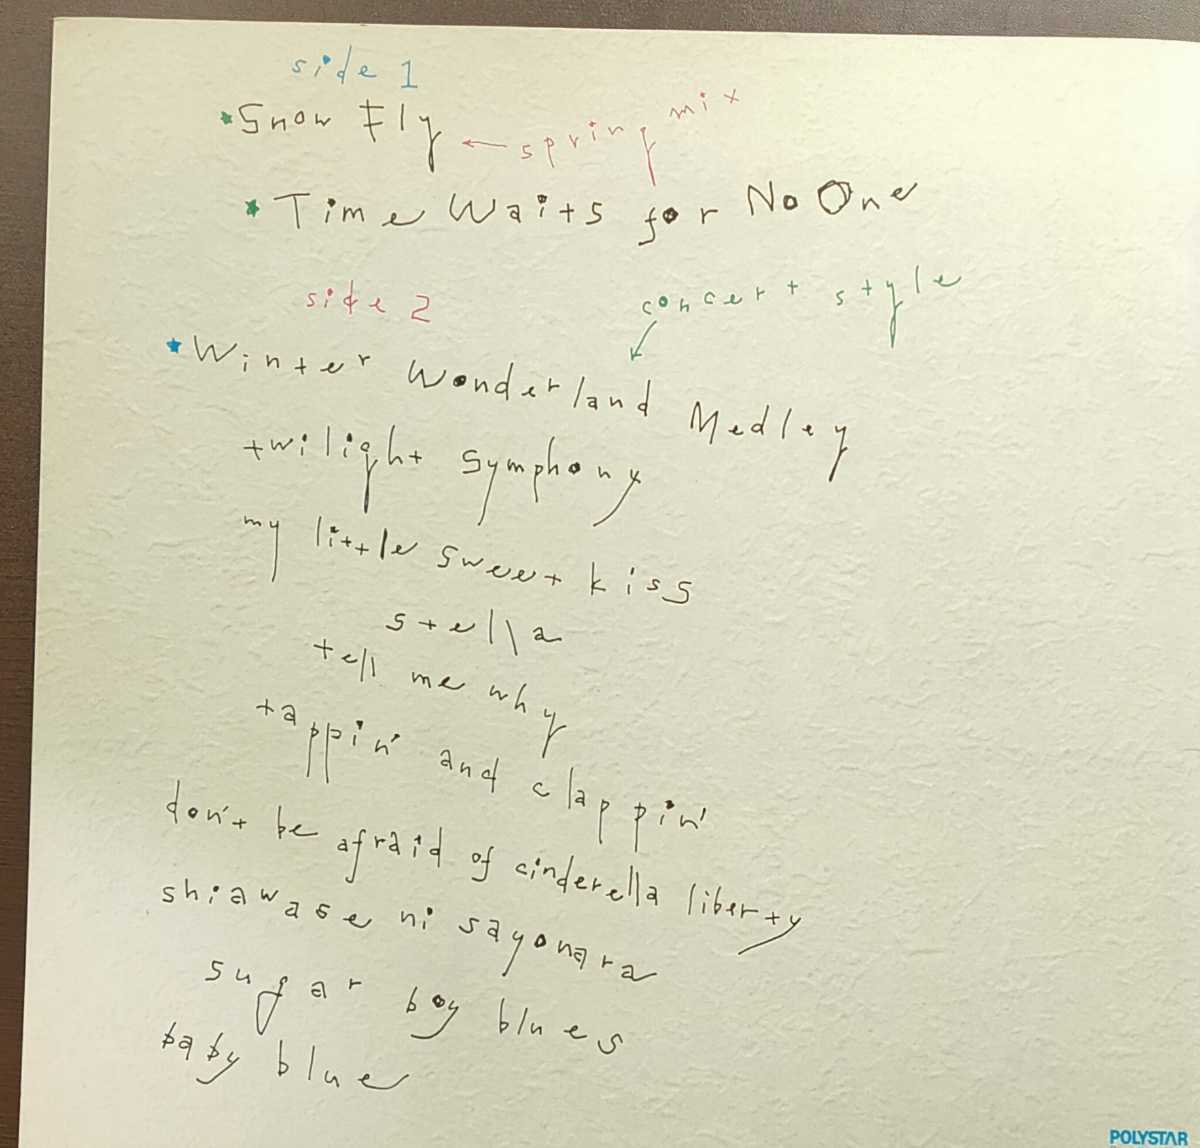 side 1
★Snow Fly ← spring mix
★Time Waits for No One
side 2
concert style
★Winter Wonderland Medley
twilight symphony
my little sweet kiss
stella
tell me why
tappin' and clappin'
don't be afraid of cinderella liberty
shiawase ni sayonara
sugar boy blues
baby blue
POLYSTAR